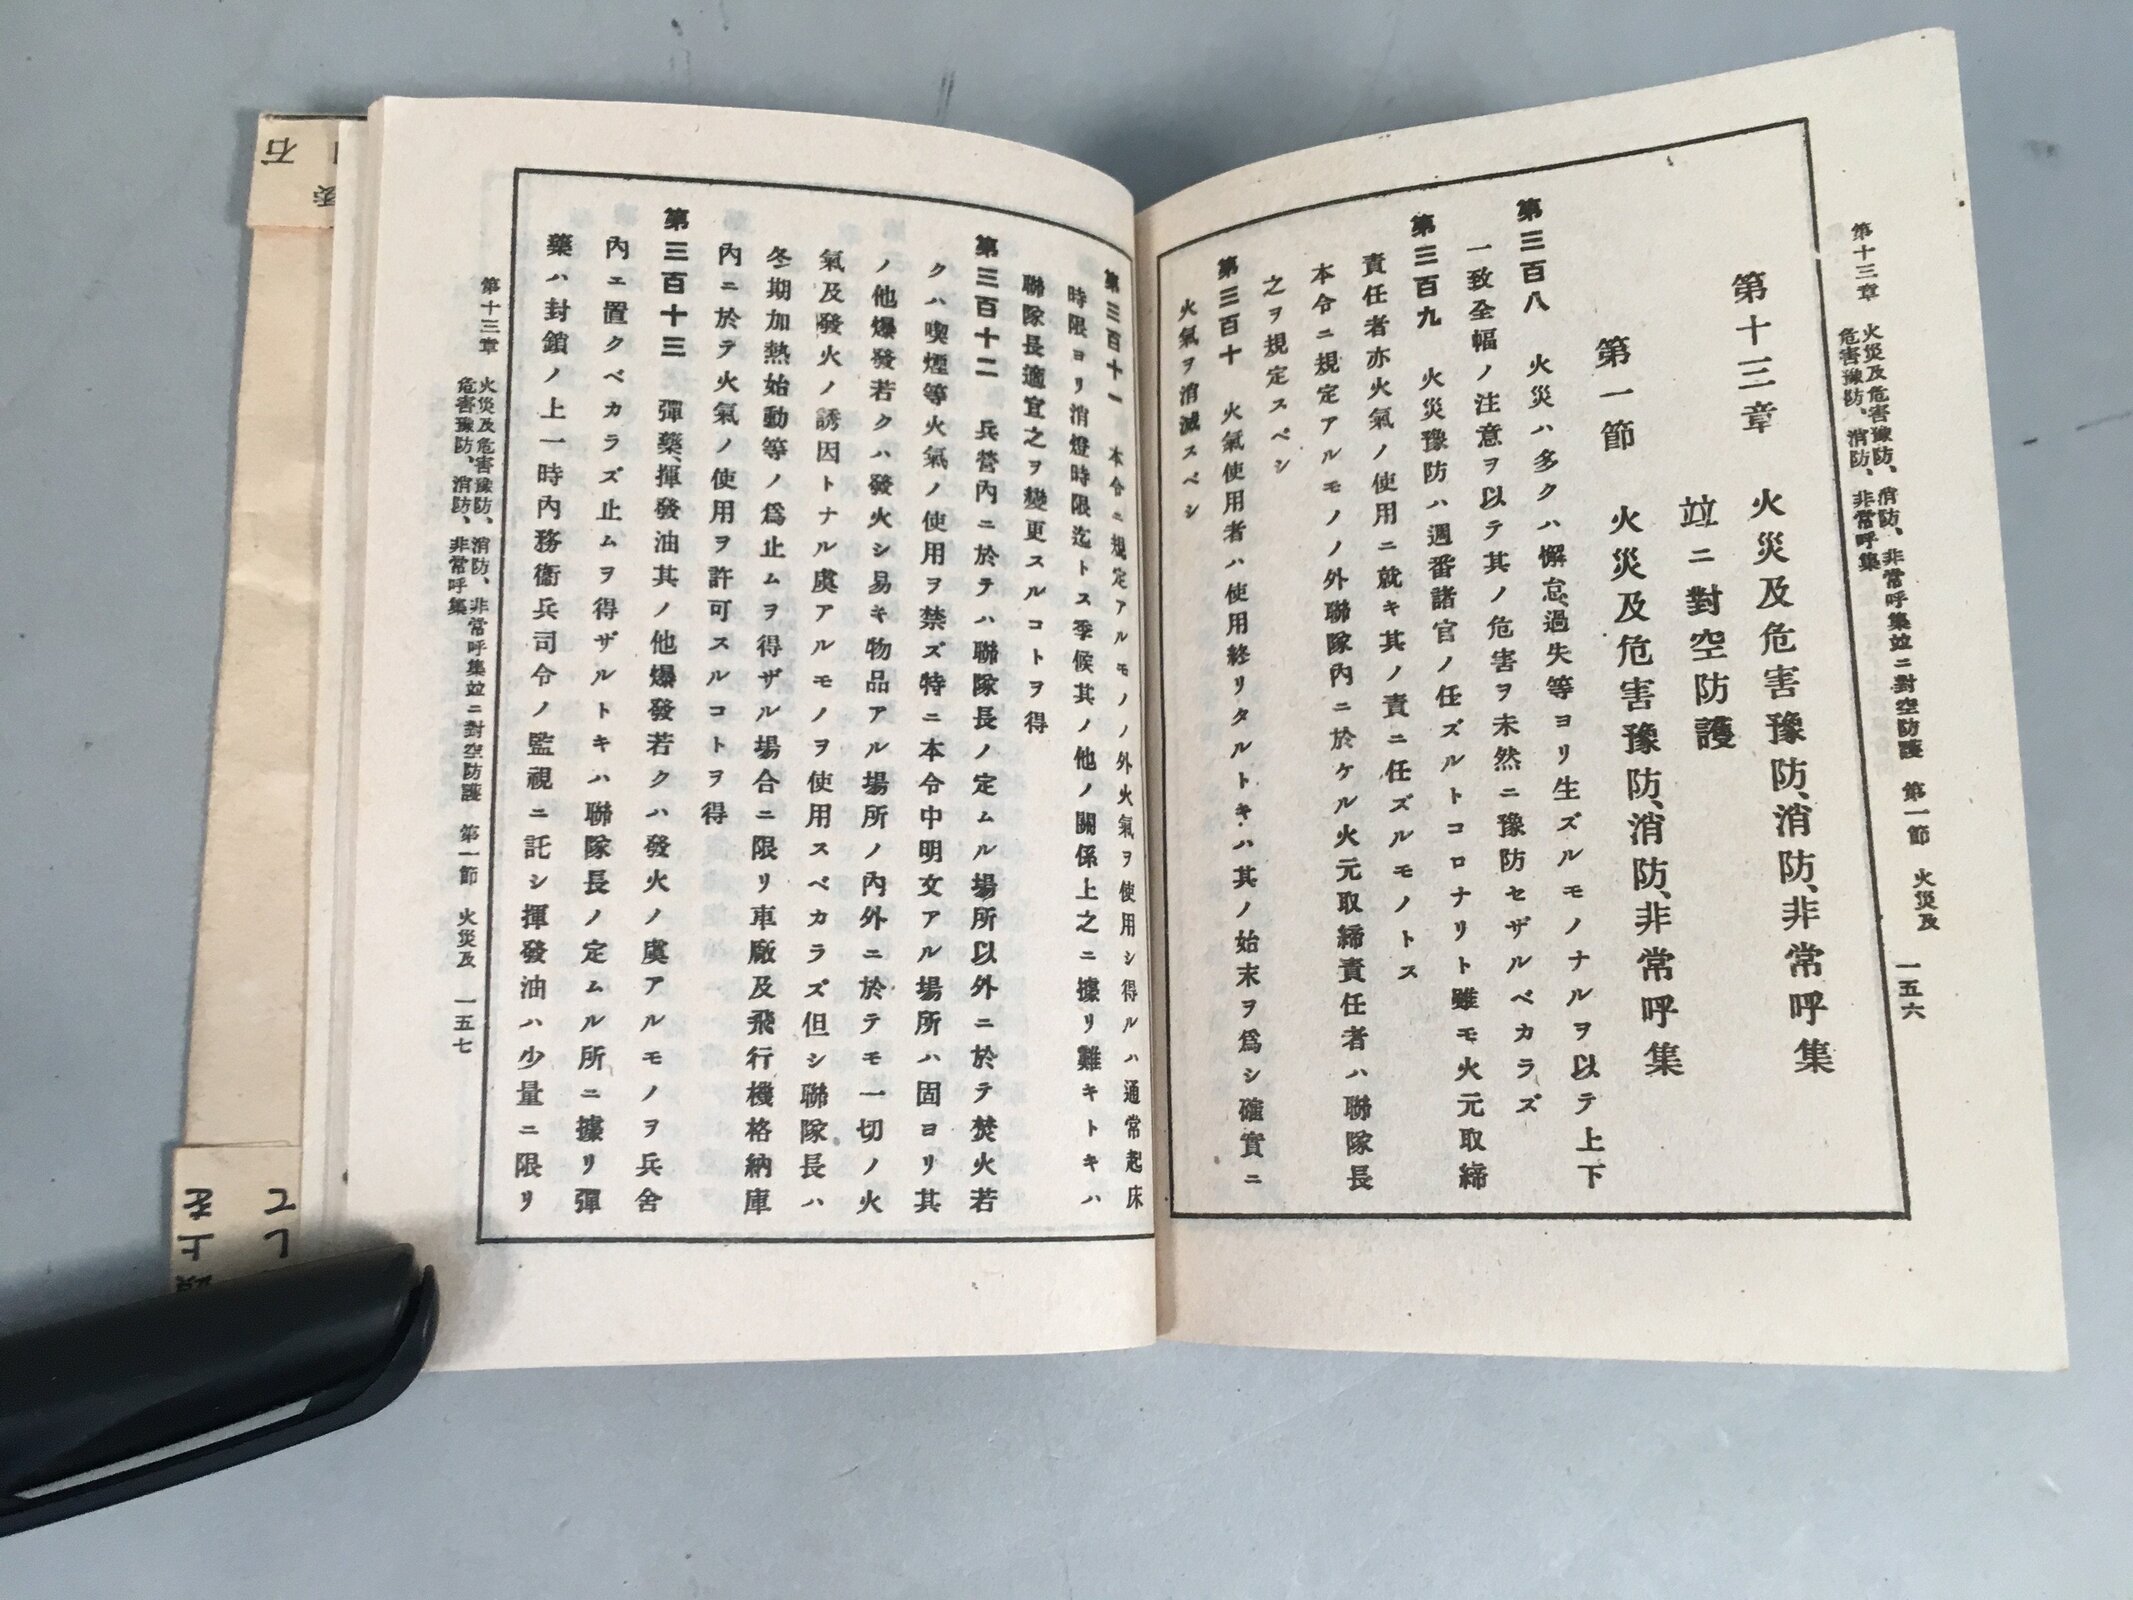 第十三章 火災及危害豫防、消防、非常呼集竝ニ對空防護 第一節 火災及
危害豫防、消防、非常呼集
一五六
第十三章 火災及危害豫防、消防、非常呼集
竝ニ對空防護
第一節 火災及危害豫防、消防、非常呼集
第三百八 火災ハ多クハ懈怠、過失等ヨリ生ズルモノナルヲ以テ上下
一致全幅ノ注意ヲ以テ其ノ危害ヲ未然ニ豫防セザルベカラズ
第三百九 火災豫防ハ週番諸官ノ任ズルトコロナリト雖モ火元取締
責任者亦火氣ノ使用ニ就キ其ノ責ニ任ズルモノトス
本令ニ規定アルモノノ外聯隊內ニ於ケル火元取締責任者ハ聯隊長
之ヲ規定スベシ
第三百十 火氣使用者ハ使用終リタルトキハ其ノ始末ヲ爲シ確實ニ
火氣ヲ消滅スベシ
第三百十一 本令ニ規定アルモノノ外火氣ヲ使用シ得ルハ通常起床
時限ヨリ消燈時限迄トス季候其ノ他ノ關係上之ニ據リ難キトキハ
聯隊長適宜之ヲ變更スルコトヲ得
第三百十二 兵營內ニ於テハ聯隊長ノ定ムル場所以外ニ於テ焚火若
クハ喫煙等火氣ノ使用ヲ禁ズ特ニ本令中明文アル場所ハ固ヨリ其
ノ他爆發若クハ發火シ易キ物品アル場所ノ內外ニ於テモ一切ノ火
氣及發火ノ誘因トナル虞アルモノヲ使用スベカラズ但シ聯隊長ハ
冬期加熱始動等ノ爲止ムヲ得ザル場合ニ限リ車廠及飛行機格納庫
內ニ於テ火氣ノ使用ヲ許可スルコトヲ得
第三百十三 彈藥、揮發油其ノ他爆發若クハ發火ノ虞アルモノヲ兵舍
內ニ置クベカラズ止ムヲ得ザルトキハ聯隊長ノ定ムル所ニ據リ彈
藥ハ封鎖ノ上一時內務衞兵司令ノ監視ニ託シ揮發油ハ少量ニ限リ
第十三章 火災及危害豫防、消防、非常呼集竝ニ對空防護 第一節 火災及
危害豫防、消防、非常呼集
一五七
石